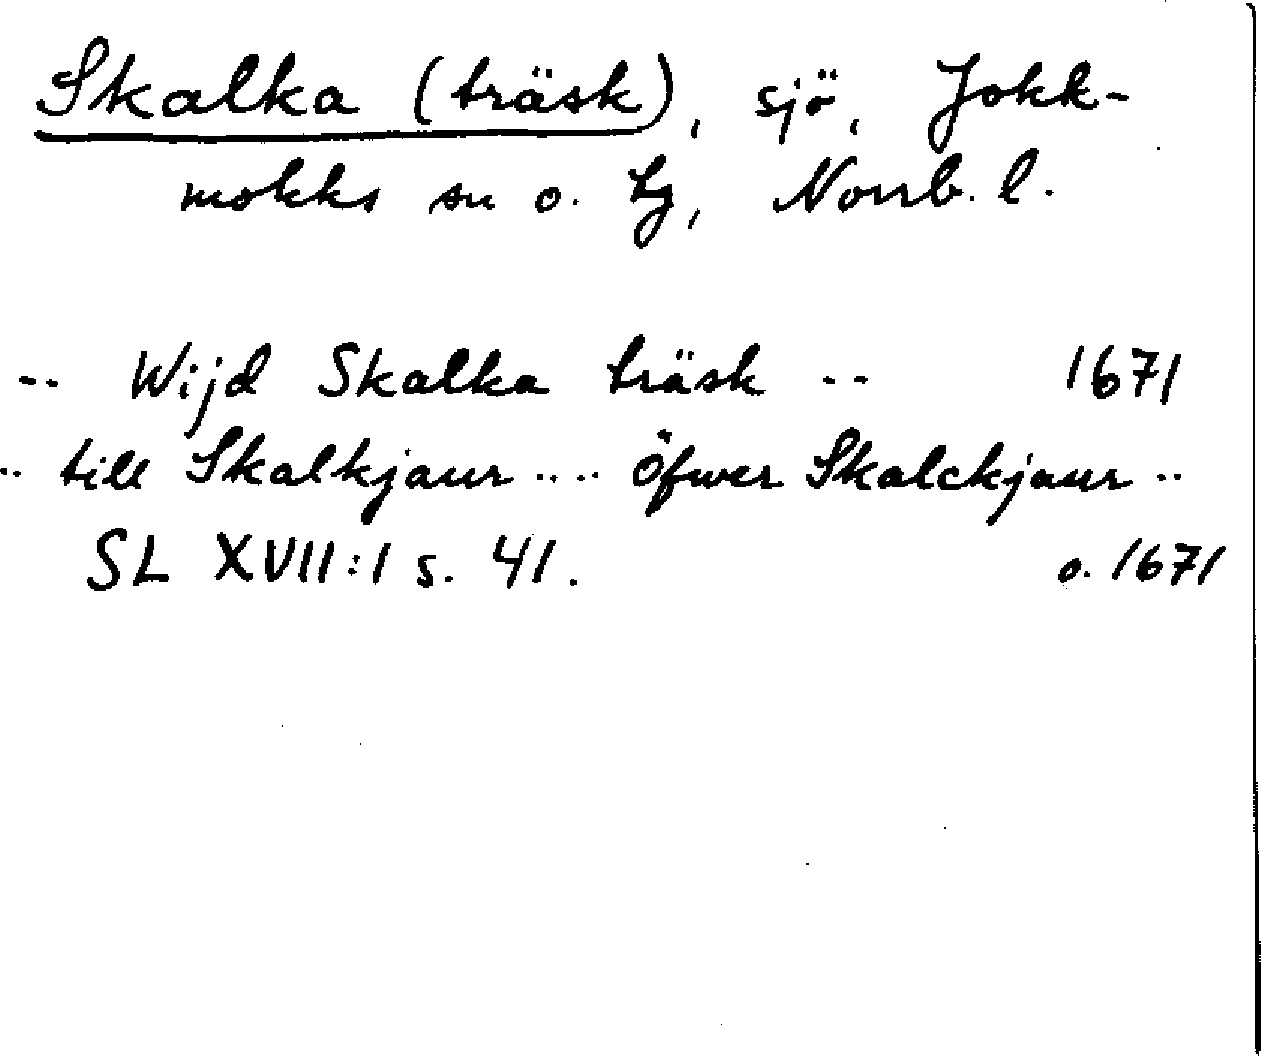 Skalka (träsk), sjö, Jokk-
mokks sn o. tg, Norrb. l.
-- Wijd Skalka träsk -- 1671
.. till Skalkjaur .... öfwer Skalckjaur ..
SL XVII:1 s. 41. o. 1671